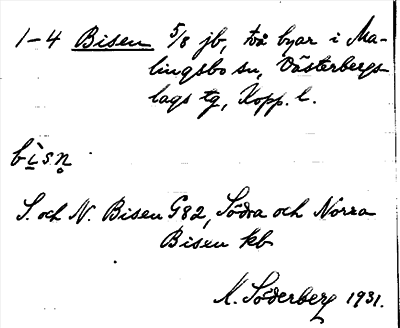 1-4 Bisen 5/8 jb, två byar i Ma-
lingsbo sn, Västerbergs-
lags tg, Kopp. l.
bìsn̥
S. och N. Bisen G82, Södra och Norra
Bisen kb
K. Söderberg 1931.